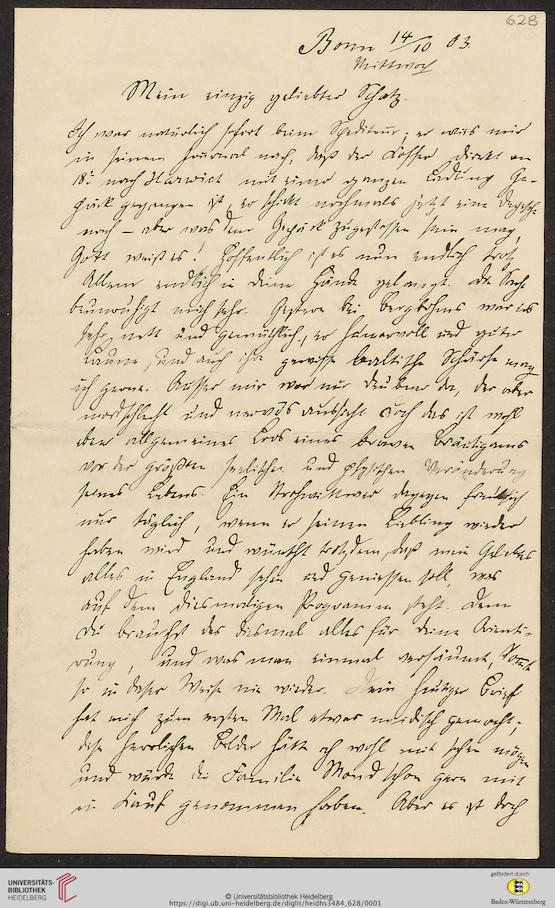 628
Bonn 14/10 03.
Mittwoch
Mein einzig geliebter Schatz.
Ich war natürlich sofort beim Spediteur; er wies mir
in seinem Journal nach, daß der Koffer direkt am
18. nach Harwich mit einer ganzen Ladung Ge-
päck gegangen ist, er schickt nochmals jetzt eine Depesche
nach – aber was dem Gepäck zugestossen sein mag,
Gott weiß es! Hoffentlich ist es nun endlich trotz
Allem endlich in deine Hände gelangt. Die Sache
beunruhigt mich sehr. Gestern bei Bergbohms war es
sehr nett und gemüthlich, er humorvoll und guter
Laune, und auch ihre gewisse baltische Schärfe mag
ich gerne. Ausser mir war nur da, der aber
mordschlecht und nervös aussieht doch das ist wohl
eben allgemeines Loos eines braven Bräutigams
vor der größten seelischen und physischen Veränderung
seines Lebens. Ein Strohwittwer dagegen freut sich
nur täglich, wenn er seinen Liebling wieder
haben wird und wünscht trotzdem, daß mein Geliebtes
alles in England sehen und geniessen soll, was
auf dem diesmaligen Programm steht. Denn
Du brauchst das diesmal alles für deine Orienti-
rung, und was man einmal versäumt, kommt
so in dieser Weise nie wieder. Dein heutiger Brief
hat mich zum ersten Mal etwas neidisch gemacht;
diese herrlichen Bilder hätte ich wohl mit sehen mögen
und würde die Familie Mond schon gern mit
in Kauf genommen haben. Aber es ist doch
UNIVERSITÄTS-
BIBLIOTHEK
HEIDELBERG
© Universitätsbibliothek Heidelberg
https://digi.ub.uni-heidelberg.de/diglit/heidhs3484_628/0001
gefördert durch
Baden-Württemberg